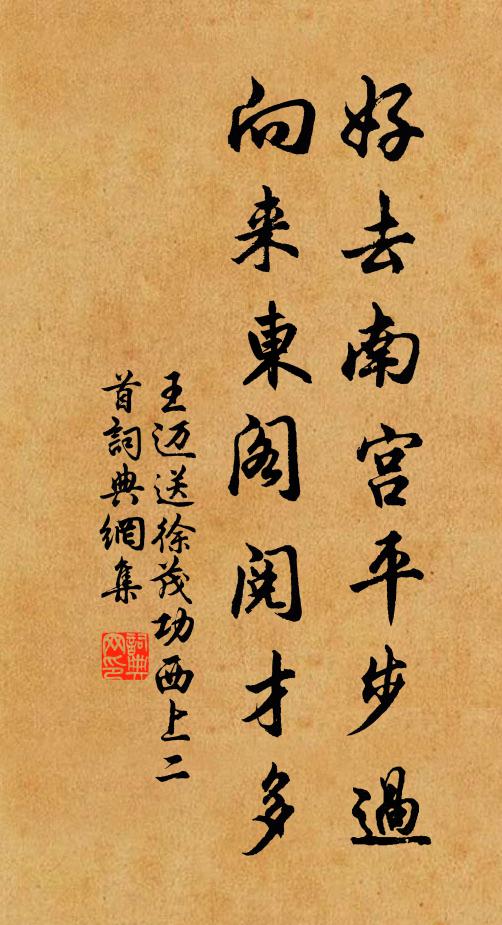 好去南宫平步過
向来東阁阅才多
王迈送徐茂功西上二
首詞典網集
詞典网印